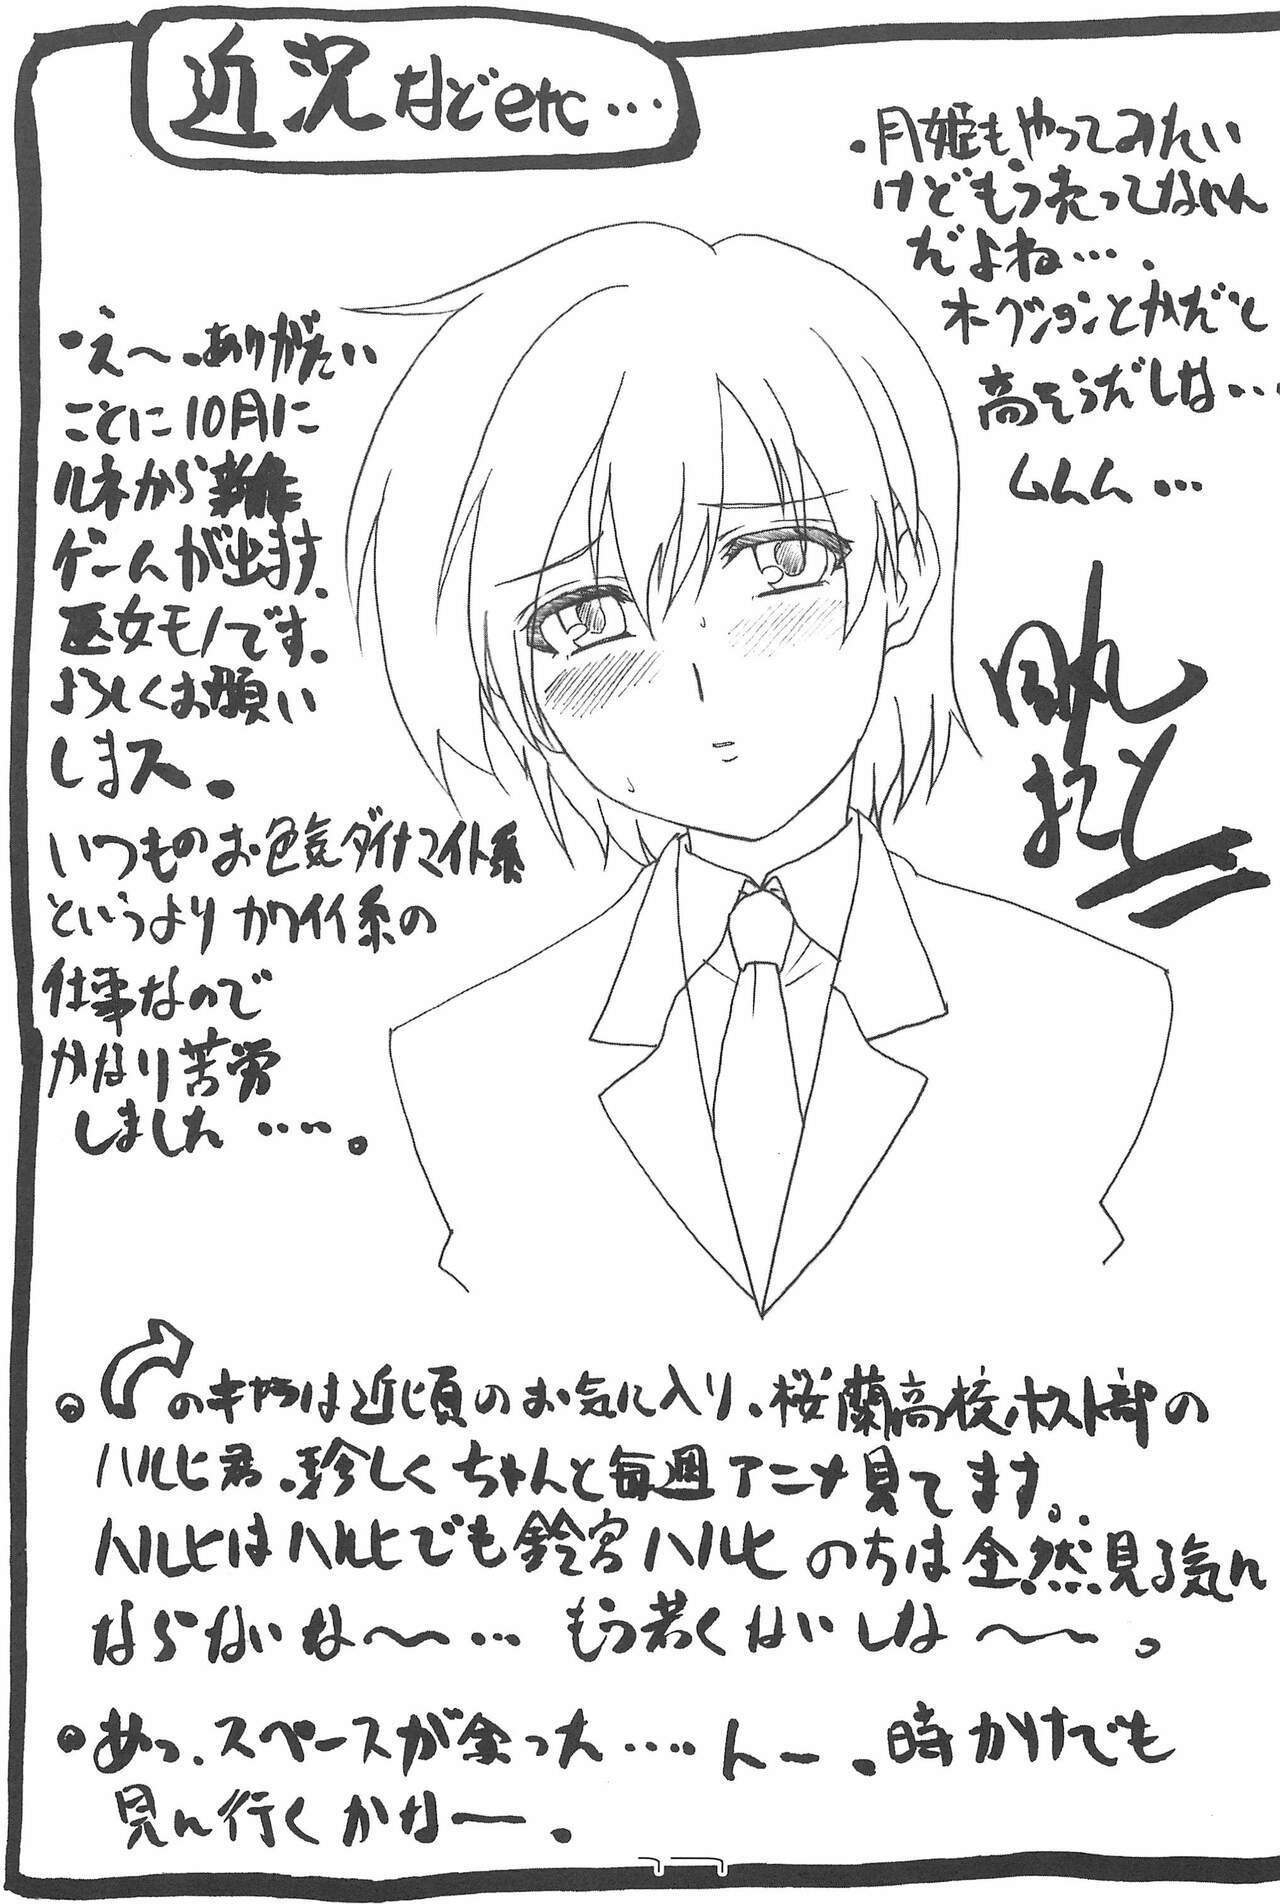 近況などetc…
・え〜、ありがたい
ことに10月に
ルネから新作
ゲームが出ます。
巫女モノです。
よろしくお願い
しまス。
いつものお色気ダイナマイト系
というよりカワイイ系の
仕事なので
かなり苦労
しました‥‥。
・月姫もやってみたい
けどもう売ってないん
だよね…。
オークションとかだと
高そうだしな…
ムムム…
・のキャラは近頃のお気に入り、桜蘭高校ホスト部の
ハルヒ君。珍しくちゃんと毎週アニメ見てます。
ハルヒはハルヒでも鈴宮ハルヒのちは全然見る気に
ならないな〜…もう若くはないしな〜。
・あっ、スペースが余った‥‥んー。時かけでも
見に行くかなー。